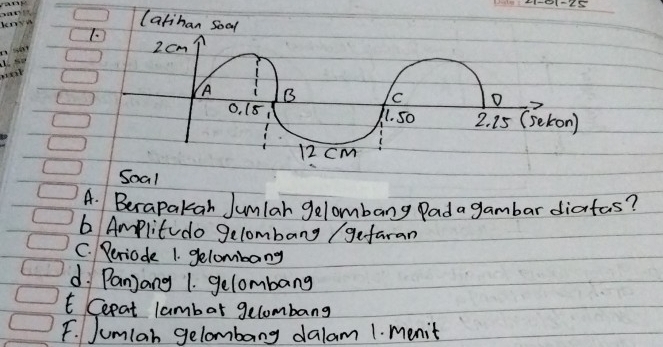 21-01-25
Latihan Soal
1.
2 cm
A
B
C
D
0.15
1.50
2.25 (sekon)
12 CM
Soal
A. Berapakah Jumlah gelombang Pada gambar diatas?
b Amplitudo gelombang /getaran
C. Periode 1. gelombang
d. Panjang 1. gelombang
E Cepat lambat gelombang
F. Jumlah gelombang dalam 1. menit